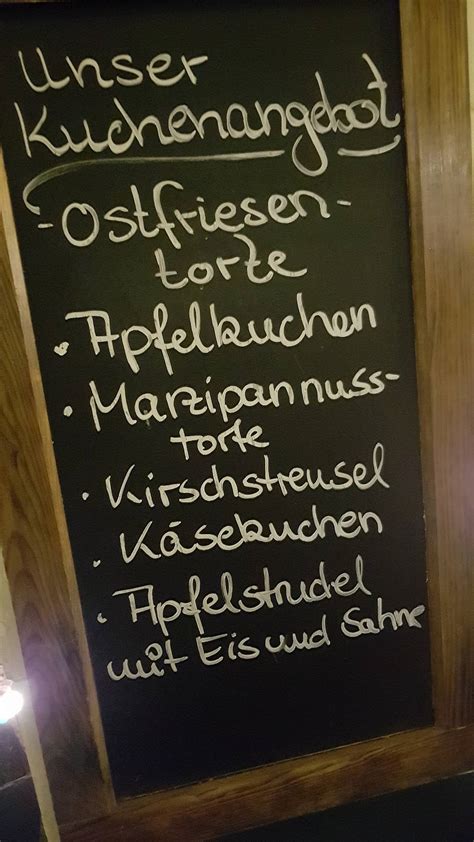 Unser
Kuchenangebot
- Ostfriesen-
torte
• Apfelkuchen
• Marzipannuss-
torte
• Kirschstreusel
• Käsekuchen
• Apfelstrudel
mit Eis und Sahne